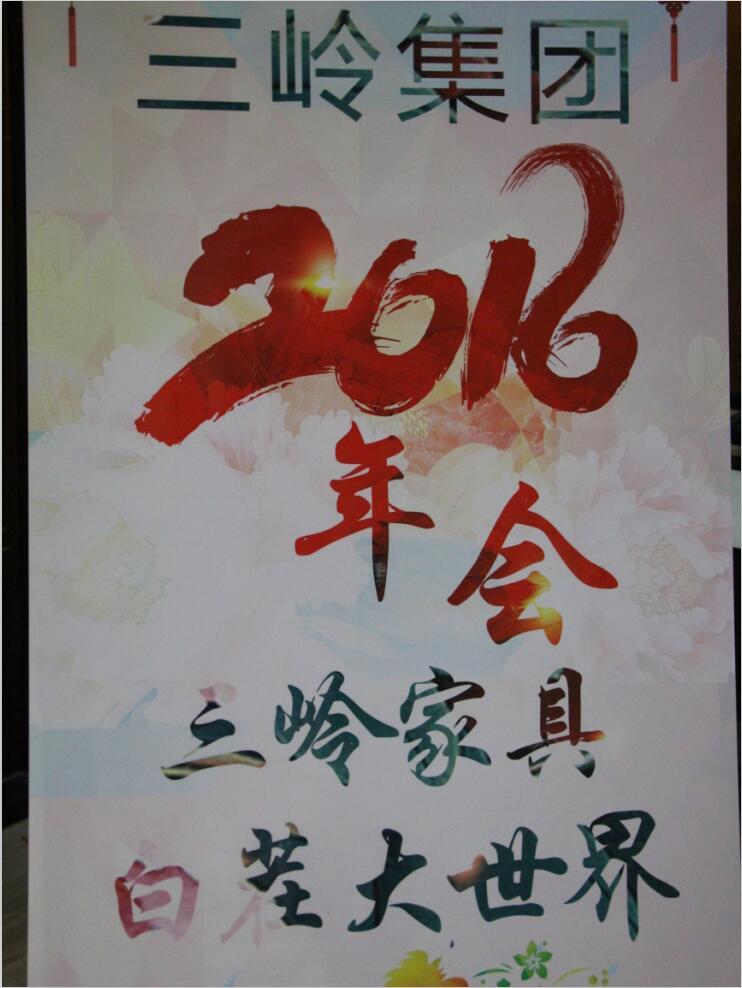 三岭集团
2016
年会
三岭家具
白茬大世界